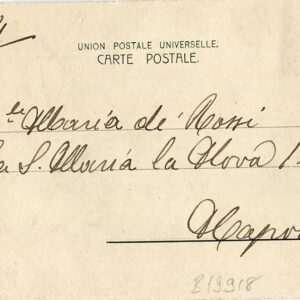 UNION POSTALE UNIVERSELLE.
CARTE POSTALE.
Maria de' Rossi
S. Maria la Nova
Napo
B19918